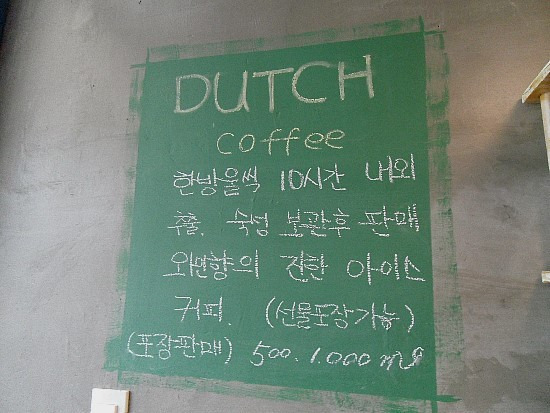 DUTCH
coffee
한방울씩 10시간 내외
추출. 숙성 보관후 판매
와인향의 진한 아이스
커피. (선물포장가능)
(포장판매) 500. 1.000ml